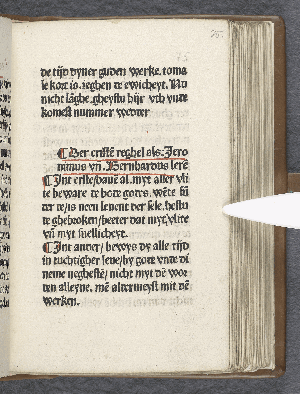 de tijd dyner guden werke. toma
le kort is. jeghen de ewicheyt. Nv
nicht lãghe. gheystu hijr vth vnde
komest nummer wedder
¶ Der erstẽ reghel als. Jero
nimus vñ. Bernhardus lerẽ
¶ Int erste bauẽ al. myt aller vli
te beware de bode godes. wẽte sũ
der is neen leuent der sele. bestu
ghebroken beter dat myt vlite
vñ myt snellicheyt.
¶ Int ander bewys dy alle tijd
in tuchtigher leue by gode vnde dỉ
neme neghestẽ. nicht myt dẽ wor
den alleyne. mẽ aldermeyst mit dẽ
werken.